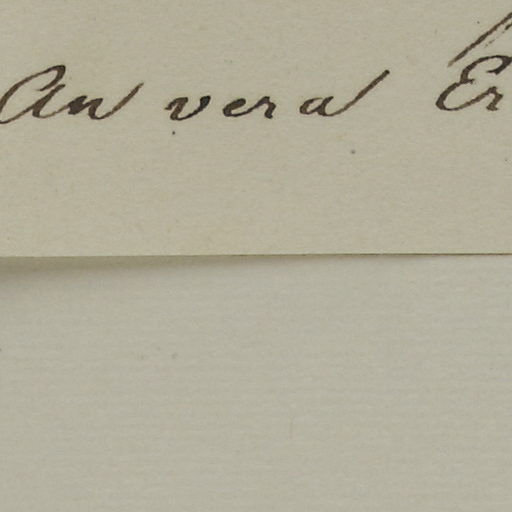 An vera Er